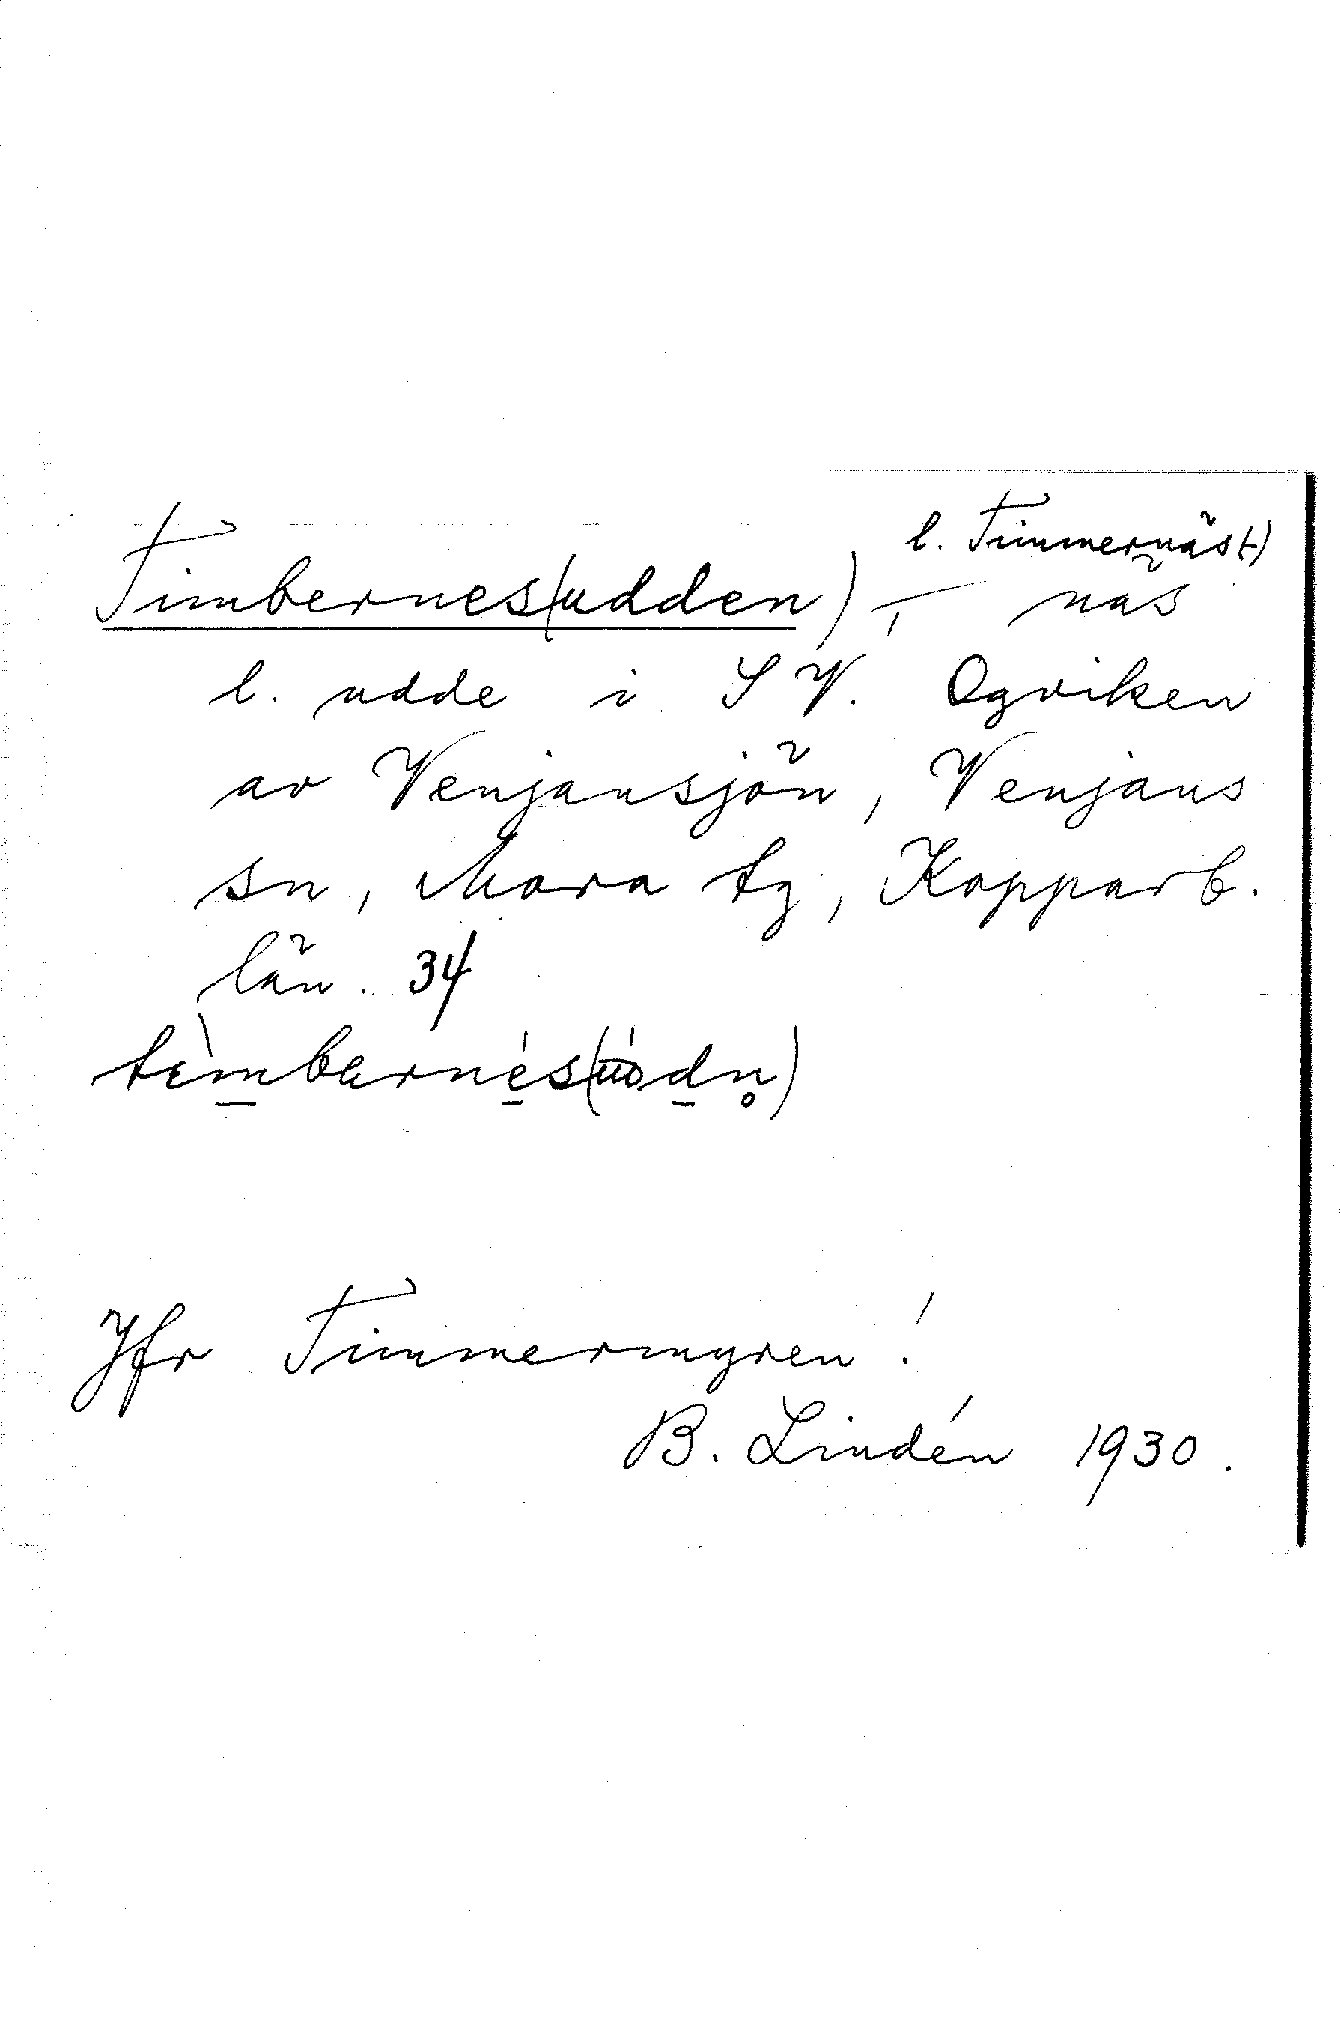 l. Timmernäs(-)
Timbernes(udden), — näs
l. udde i SV. Ogviken
av Venjansjön, Venjans
sn, Mora tg, Kopparb.
län. 34
tìmbernés(údn̥)
Jfr Timmermyren!
B. Lindén 1930.